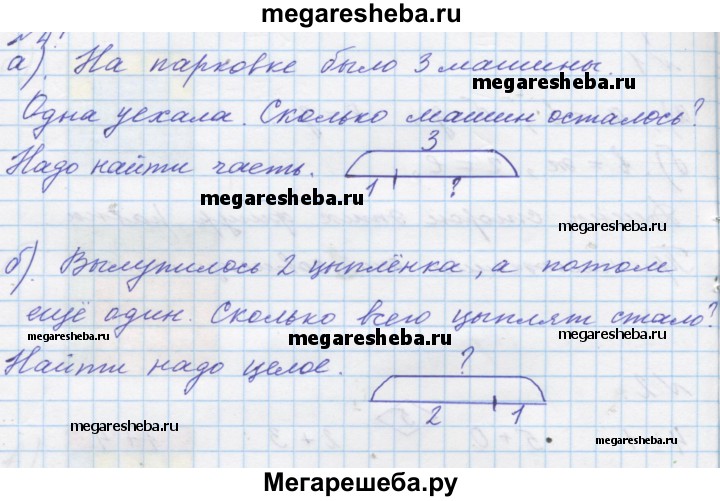 megaresheba.ru
№ 4.
а). На парковке было 3 машины.
megaresheba.ru
Одна уехала. Сколько машин осталось?
3
Надо найти часть.
1 ?
megaresheba.ru
megaresheba.ru
б). Вылупилось 2 цыплёнка, а потом
ещё один. Сколько всего цыплят стало?
megaresheba.ru
megaresheba.ru
megaresheba.ru
Найти надо целое.
?
2 1
megaresheba.ru
megaresheba.ru
Мегарешеба.ру